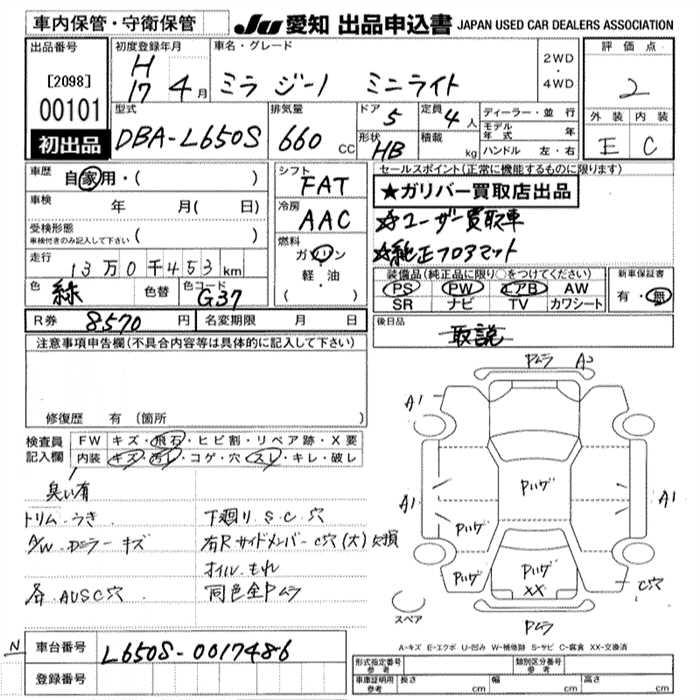 車内保管・守衛保管
JU 愛知 出品申込書 JAPAN USED CAR DEALERS ASSOCIATION
出品番号
[2098]
00101
初出品
初度登録年月
H 17 4月
車名・グレード
ミラ ジーノ ミニライト
2WD・4WD
評価点
2
外装 内装
E C
型式
DBA-L650S
排気量
660 CC
ドア 5
形状 HB
定員 4人
積載 kg
ディーラー・並行
モデル年式 年
ハンドル 左・右
車歴 自家用・( )
車検 年 月( 日)
受検形態
車検付きのみ記入して下さい ( )
走行 13万0千453km
色 緑 色替 色コード G37
シフト FAT
冷房 AAC
燃料 ガソリン
軽・油
( )
セールスポイント(正常に機能するものに限ります)
★ガリバー買取店出品
☆ユーザー買取車
☆純正フロアマット
装備品(純正品に限り○をつけてください)
PS PW エアB AW
SR ナビ TV カワシート
新車保証書
有・無
R券 8570円 名変期限 月 日
後日品
取説
注意事項申告欄(不具合内容等は具体的に記入して下さい)
修復歴 有 (箇所 )
検査員記入欄
FW キズ・飛石・ヒビ割・リペア跡・X要
内装 キズ・汚レ・コゲ・穴・スレ・キレ・破レ
臭い有
トリム うき 下廻り S.C 穴
A/W.Dミラー キズ 右Rサイドメンバー C穴(大)欠損
オイルもれ
各 AUSC穴 同色全Pムラ
Pムラ A2
A1
A1 A1
Pハゲ
Pハゲ Pハゲ
Pハゲ Pハゲ
XX
C穴
Pムラ
スペア
A-キズ E-エクボ U-凹み W-補修跡 S-サビ C-腐食 XX-交換済
N 車台番号 L650S-0017486
登録番号
形式指定番号 参考 類別区分番号 参考
車庫証明用 参考 長さ cm 幅 cm 高さ cm